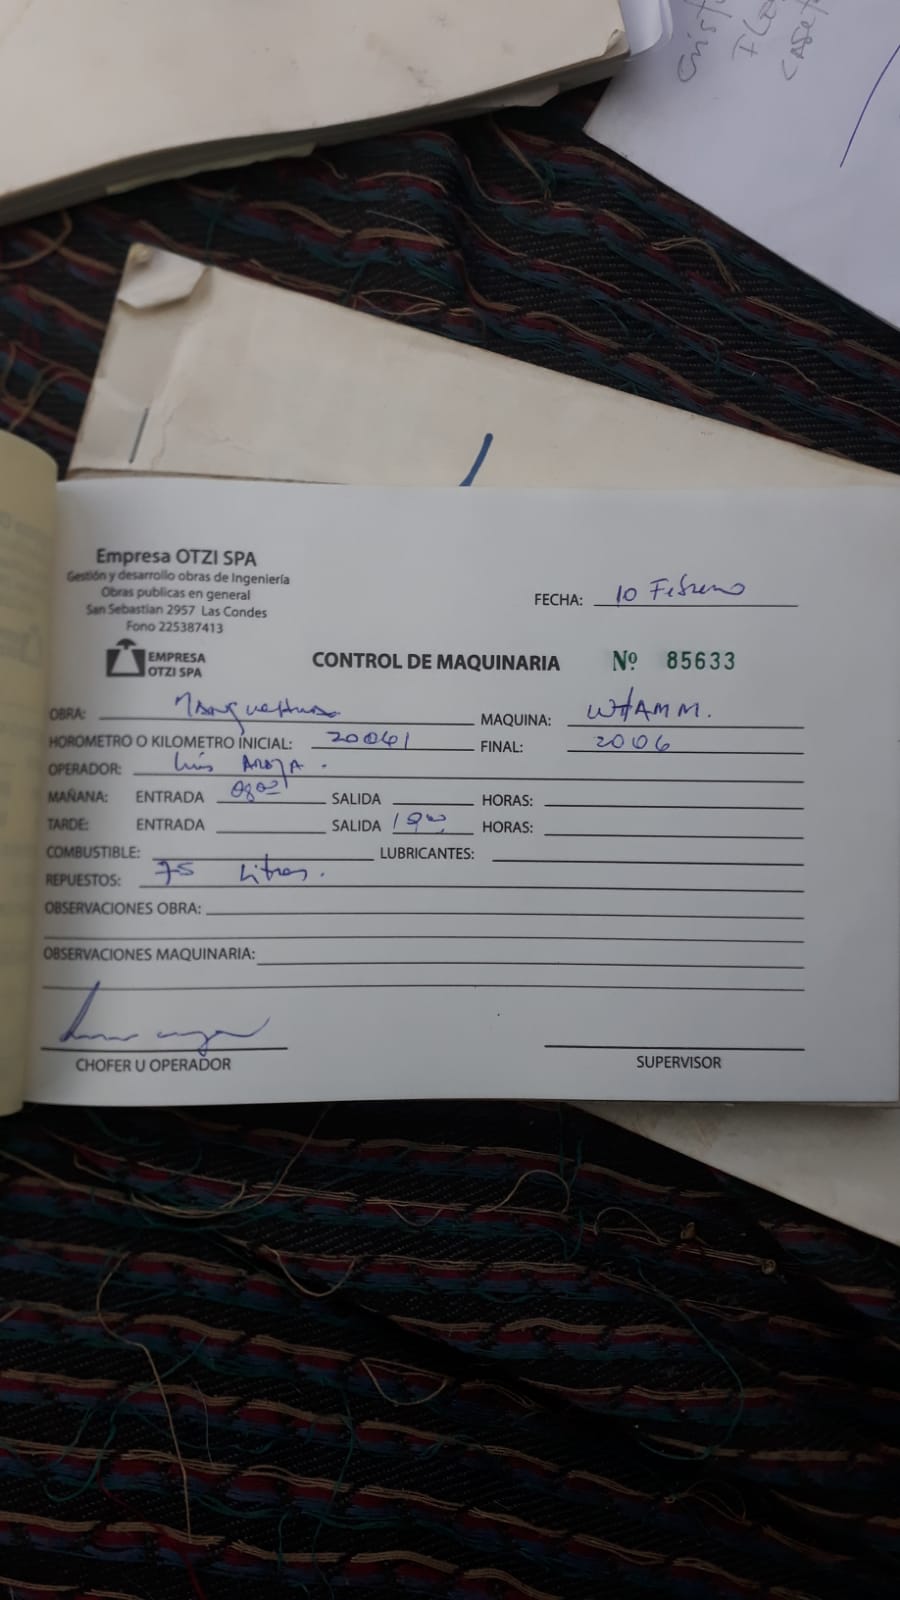 Empresa OTZI SPA
Gestión y desarrollo obras de Ingeniería
Obras publicas en general
San Sebastian 2957 Las Condes
Fono 225387413
EMPRESA
OTZI SPA
FECHA: 10 Febrero
CONTROL DE MAQUINARIA Nº 85633
OBRA: MAQUINA:
HOROMETRO O KILOMETRO INICIAL: 20041 FINAL: 2006
OPERADOR: Luis
MAÑANA: ENTRADA 0800 SALIDA HORAS:
TARDE: ENTRADA SALIDA HORAS:
COMBUSTIBLE: LUBRICANTES:
REPUESTOS: 75 Litros.
OBSERVACIONES OBRA:
OBSERVACIONES MAQUINARIA:
CHOFER U OPERADOR SUPERVISOR